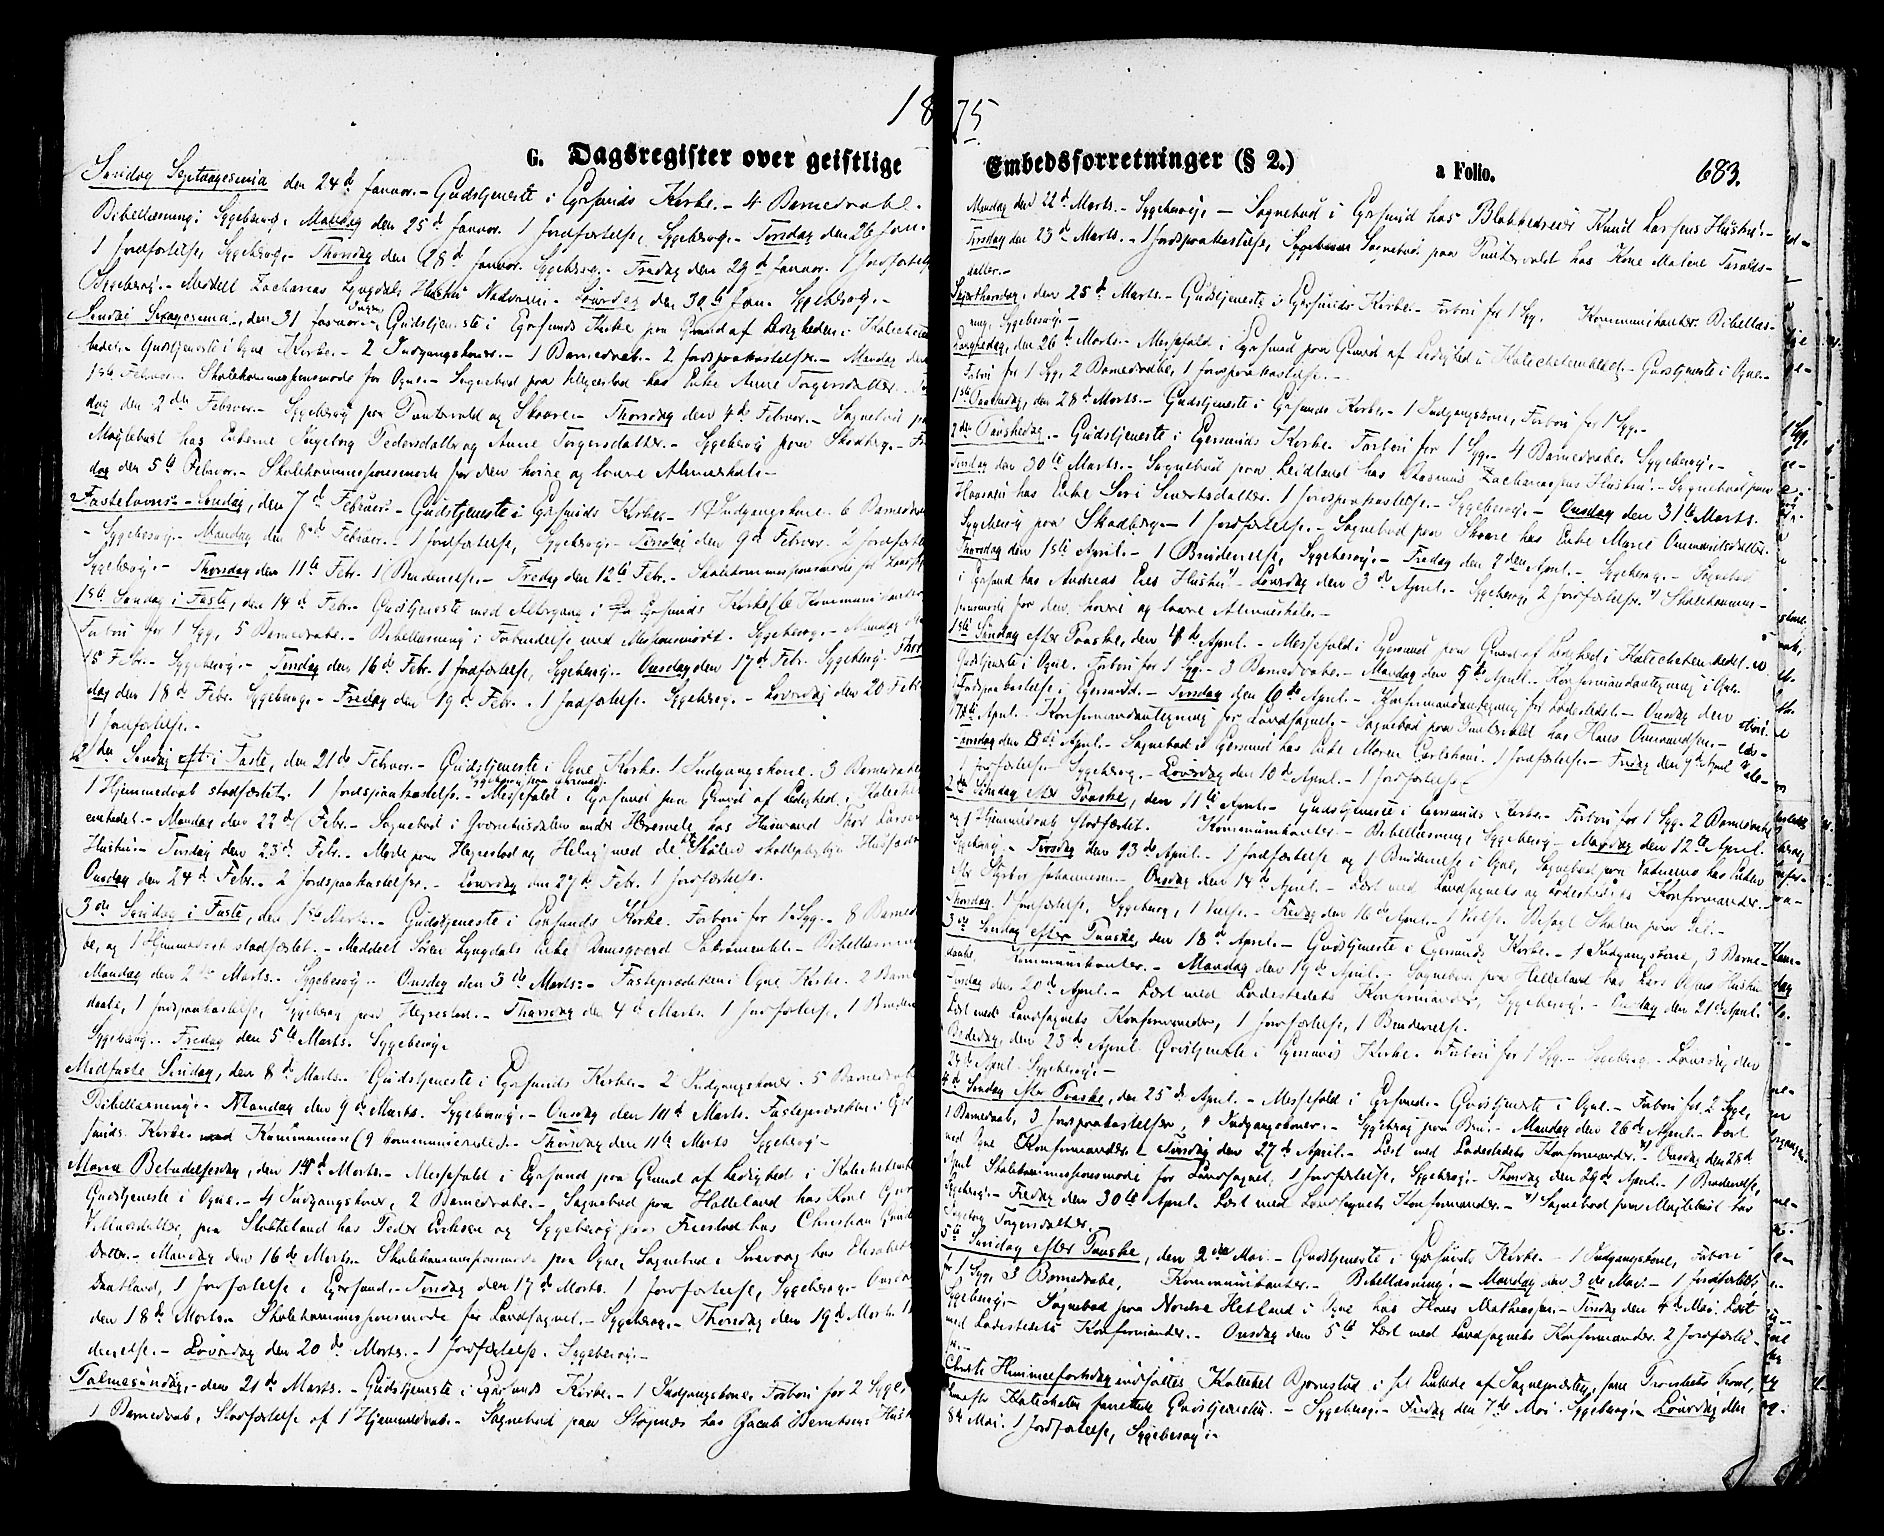 1875
G. Dagsregister over geistlige Embedsforretninger (§ 2.) a Folio. 683.
Søndag Septuagesima den 24d Januar. - Gudstjeneste i Egersunds Kirke. - 4 Barnedaab.
Bibellæsning. Sygebesøg. Mandag den 25d Januar. 1 Jordfæstelse, Sygebesøg. - Tirsdag den 26 Jan.
1 Jordfæstelse, Sygebesøg. - Thorsdag den 28d Januar. Sygebesøg. - Fredag den 29d Januar. 1 Jordfæstelse
Sygebesøg. - Meddelt Zacharias Lyngdals Hustru Nadveren. - Løverdag den 30te Jan. Sygebesøg. -
Søndag Sexagesima, den 31 Januar. - Ingen Gudstjeneste i Egersunds Kirke paa Grund af Ledigheden i Katechet
bedet. - Gudstjeneste i Ogne Kirke. - 2 Indgangskoner. - 1 Barnedaab. - 2 Jordpaakastelser. - Mandag den
1ste Februar. Skolekommissionsmøde for Ogne. - Sognebud paa har Enke Anne Torgersdatter.
dag den 2den Februar. - Sygebesøg paa Tuntervold og Skaare. - Thorsdag den 4de Februar. - Sognebud paa
Maglebust hos Enkerne Ingeborg Pedersdatter og Anne Torgersdatter. - Sygebesøg paa Skadberg. - Fre
dag den 5te Februar. - Skolekommissionsmøde for den høiere og lavere Almueskole. -
Fastelavns-Søndag, den 7d Februar. - Gudstjeneste i Egersunds Kirke. - 1 Indgangskone. 6 Barnedaab
- Sygebesøg. - Mandag den 8de Februar. - 1 Jordfæstelse, Sygebesøg. - Tirsdag den 9d Februar. 2 Jordfæstelser
Sygebesøg. - Thorsdag den 11te Febr. 1 Brudevielse. - Fredag den 12te Febr. - Skolekommissionsmøde for Landsog
1ste Søndag i Faste, den 14d Febr. Gudstjeneste med Altergang i Egersunds Kirke Kommunikanter
Forbøn for 1 Syg, 5 Barnedaab. - Bibellæsning i Forbindelse med Missionsmøde. Sygebesøg. - Mandag den
15 Febr. - Sygebesøg. - Tirsdag den 16d Febr. 1 Jordfæstelse, Sygebesøg. - Onsdag den 17d Febr. Sygebesøg. Thors
dag den 18d Febr. Sygebesøg. - Fredag den 19d Febr. - 1 Jordfæstelse. Sygebesøg. - Løverdag den 20 Febr.
1 Jordfæstelse. -
2den Søndag i Faste, den 21de Februar. - Gudstjeneste i Ogne Kirke. 1 Indgangskone. 3 Barnedaab
1 Hjemmedaab stadfæstet. 1 Jordpaakastelse. - Messefald i Egersund paa Grund af Ledighed i Katechet
embedet. - Mandag den 22d Febr. - Sognebud i Grønehusdalen under Hæresvele hos Husmand Thor Larsens
Hustru. - Tirsdag den 23d Febr. - Møde paa Hegrestad og Helvig med
Onsdag den 24d Febr. - 2 Jordpaakastelser. - Løverdag den 27d Febr. 1 Jordfæstelse.
3de Søndag i Faste, den 1ste Marts. - Gudstjeneste i Egersunds Kirke. Forbøn for 1 Syg. - 8 Barnedaa
be, og 1 Hjemmedaab stadfæstet. - Meddelt Søren Lyngdals Enke Damsgaard Sakramentet. - Bibellæsning
Mandag den 2de Marts. Sygebesøg. Onsdag den 3de Marts. - Fasteprædiken i Ogne Kirke. 2 Barne
daab, 1 Jordpaakastelse, Sygebesøg paa Hegrestad. - Thorsdag den 4de Marts. 1 Jordfæstelse, 1 Brudevi
Sygebesøg. Fredag den 5te Marts. Sygebesøg.
Midfaste Søndag, den 8de Marts. - Gudstjeneste i Egersunds Kirke. - 2 Indgangskoner. 5 Barnedaab
Bibellæsning. - Mandag den 9de Marts. Sygebesøg. - Onsdag den 10de Marts. Fasteprædiken i Eger
sunds Kirke med Kommunion (9 kommunicerede). - Thorsdag den 11te Marts Sygebesøg. -
Maria Bebudelsesdag, den 14d Marts. - Messefald i Egersund paa Grund af Ledighed i Katechetembe
Gudstjeneste i Ogne. - 4 Indgangskoner, 2 Barnedaab. - Sognebud paa Holleland hos Kone
Villumsdatter, paa Slotteland hos Peder Eriksen og Sygebesøg paa Fuestad hos Christian
datter. - Mandag den 16de Marts. Skolekommissionsmøde paa Ogne, Sognebud i Sirevaag hos Elisabeth
Daatland, 1 Jordfæstelse i Egersund. - Tirsdag den 17d Marts. 1 Jordfæstelse, Sygebesøg. - Onsdag
den 18de Marts. Skolekommissionsmøde for Landsognet. - Sygebesøg. - Thorsdag den 19d Marts
devielse. - Løverdag den 20de Marts. - 1 Jordfæstelse. Sygebesøg. -
Palmesøndag, den 21de Marts. - Gudstjeneste i Egersunds Kirke. - 1 Indgangskone, Forbøn for 2 Syge,
1 Barnedaab, Stadfæstelse af 1 Hjemmedaab. - Sognebud paa Støgnæs hos Jacob Berntsens Hust
Mandag den 22d Marts. - Sygebesøg. - Sognebud i Egersund hos Blokkedreier Knud Larsens Hustru. -
Tirsdag den 23d Marts. - 1 Jordpaakastelse, Sognebud paa Tuntervold hos Kone Malene Tarals-
datter. -
Skjærthorsdag, den 25d Marts. - Gudstjeneste i Egersunds Kirke. - Forbøn for 1 Syg. Kommunikanter. Bibellæs-
ning, Sygebesøg. -
Langfredag, den 26de Marts. - Messefald i Egersund paa Grund af Ledighed i Katechetembedet. - Gudstjeneste i Ogne. -
Forbøn for 1 Syg, 2 Barnedaab, 1 Jordpaakastelse. -
1ste Paaskedag, den 28d Marts. - Gudstjeneste i Egersunds Kirke. - 1 Indgangskone, Forbøn for 1 Syg. -
2den Paaskedag. - Gudstjeneste i Egersunds Kirke. Forbøn for 1 Syg. - 4 Barnedaab. Sygebesøg. -
Tirsdag den 30te Marts. - Sognebud paa Leidland hos Rasmus Zachariassens Hustru. - Sognebud paa
Haasæi hos Enke Siri Sivertsdatter. 1 Jordpaakastelse. - Sygebesøg. - Onsdag den 31te Marts.
Sygebesøg paa Skadberg. - 1 Jordfæstelse. - Sognebud paa Skaare hos Enke Marie Ommundsdatter.
Thorsdag den 1ste April. - 1 Brudevielse, Sygebesøg. - Fredag den 2den April. - Sygebesøg. - Sognebud
i Egersund hos Andreas Eies Hustru. - Løverdag den 3de April. - Sygebesøg, 2 Jordfæstelser. Skolekommis-
sionsmøde for den høiere og lavere Almueskole. -
1ste Søndag efter Paaske, den 4de April. - Messefald i Egersund paa Grund af Ledighed i Katechetembedet. -
Gudstjeneste i Ogne. Forbøn for 1 Syg. - 3 Barnedaab. - Mandag den 5te April. - Konfirmandantegning i Ogne.
Jordpaakastelse i Egersund. - Tirsdag den 6de April. - Konfirmandantegning for Ladestedet. - Onsdag den
7de April. Konfirmandantegning for Landsognet. - Sognebud paa Tuntervold hos Hans Ommundsen. -
Thorsdag den 8de April. - Sognebud i Egersund hos Enke Maren Carlsthun. 1 Jordfæstelse. - Fredag den 9de April
1 Jordfæstelse Sygebesøg. - Løverdag den 10de April. - 1 Jordfæstelse.
2den Søndag efter Paaske, den 11te April. - Gudstjeneste i Egersunds Kirke. - Forbøn for 1 Syg. 2 Barnedaab
og 1 Hjemmedaab stadfæstet. Kommunikanter. - Bibellæsning, Sygebesøg. - Mandag den 12te April.
Sygebesøg. - Tirsdag den 13de April. - 1 Jordfæstelse og 1 Brudevielse i Ogne, Sognebud paa Vatnemo hos Enken
efter Styrkor Johannesen. - Onsdag den 14de April. - Læst med Landsognets og Ladestedets Konfirmander. -
Thorsdag 1 Jordfæstelse, Sygebesøg, 1 Vielse. - Fredag den 16de April. - 1 Vielse. Besøgt Skolen paa
3de Søndag efter Paaske, den 18d April. - Gudstjeneste i Egersunds Kirke. - 1 Indgangskone, 3 Barne-
daabe, Kommunikanter. - Mandag den 19de April. - Sognebud paa Helleland hos Lars Hustru
Tirsdag den 20de April. - Læst med Ladestedets Konfirmander, Sygebesøg. - Onsdag den 21de April.
Læst med Landsognets Konfirmander, 1 Jordfæstelse, 1 Brudevielse.
Bededag, den 23de April. Gudstjeneste i Egersunds Kirke. Forbøn for 1 Syg. - Sygebesøg. - Løverdag den
24de April. Sygebesøg. -
4de Søndag efter Paaske, den 25de April. - Messefald i Egersund. - Gudstjeneste i Ogne. - Forbøn for 2 Syge,
1 Barnedaab, 3 Jordpaakastelser, 4 Indgangskoner. - Sygebesøg paa Bru. - Mandag den 26de April. - Læst
med Ogne Konfirmander. - Tirsdag den 27de April. - Læst med Ladestedets Konfirmander. - Onsdag den 28d
April Skolekommissionsmøde for Landsognet, 1 Jordfæstelse, Sygebesøg. - Thorsdag den 29de April. - 1 Brudevielse,
Sygebesøg. - Fredag den 30te April. Læst med Landsognets Konfirmander. - Sognebud paa Maglebust hos
Ingeborg Torgersdatter.
5te Søndag efter Paaske, den 2den Mai. - Gudstjeneste i Egersunds Kirke. - 1 Indgangskone, Forbøn
for 1 Syg, 3 Barnedaab, Kommunikanter. - Bibellæsning. - Mandag den 3de Mai. - 1 Jordfæstelse,
Sygebesøg. - Sognebud paa Nordre Hetland i Ogne hos Hans Mathiassen. - Tirsdag den 4de Mai. Læst
med Ladestedets Konfirmander. - Onsdag den 5te Læst med Landsognets Konfirmander. 2 Jordfæstel-
ser. -
Christi Himmelfartsdag indsattes Katechet Bjørnstad i sit Embede af Sognepræsten,
efter Katecheten forrettede Gudstjenesten. - Sygebesøg. - Fredag den 7de Mai. Sygebesøg. - Løverdag den
8de Mai. 1 Jordfæstelse, Sygebesøg. -